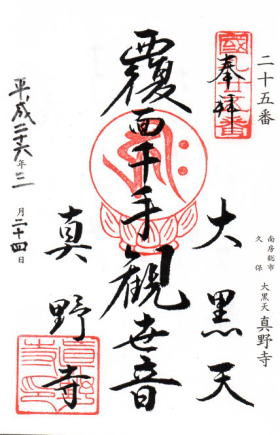 二十五番
奉拝
大黒天
南房総市
久保
大黒天 真野寺
覆面千手観世音
真野寺
平成二十六年三月二十四日